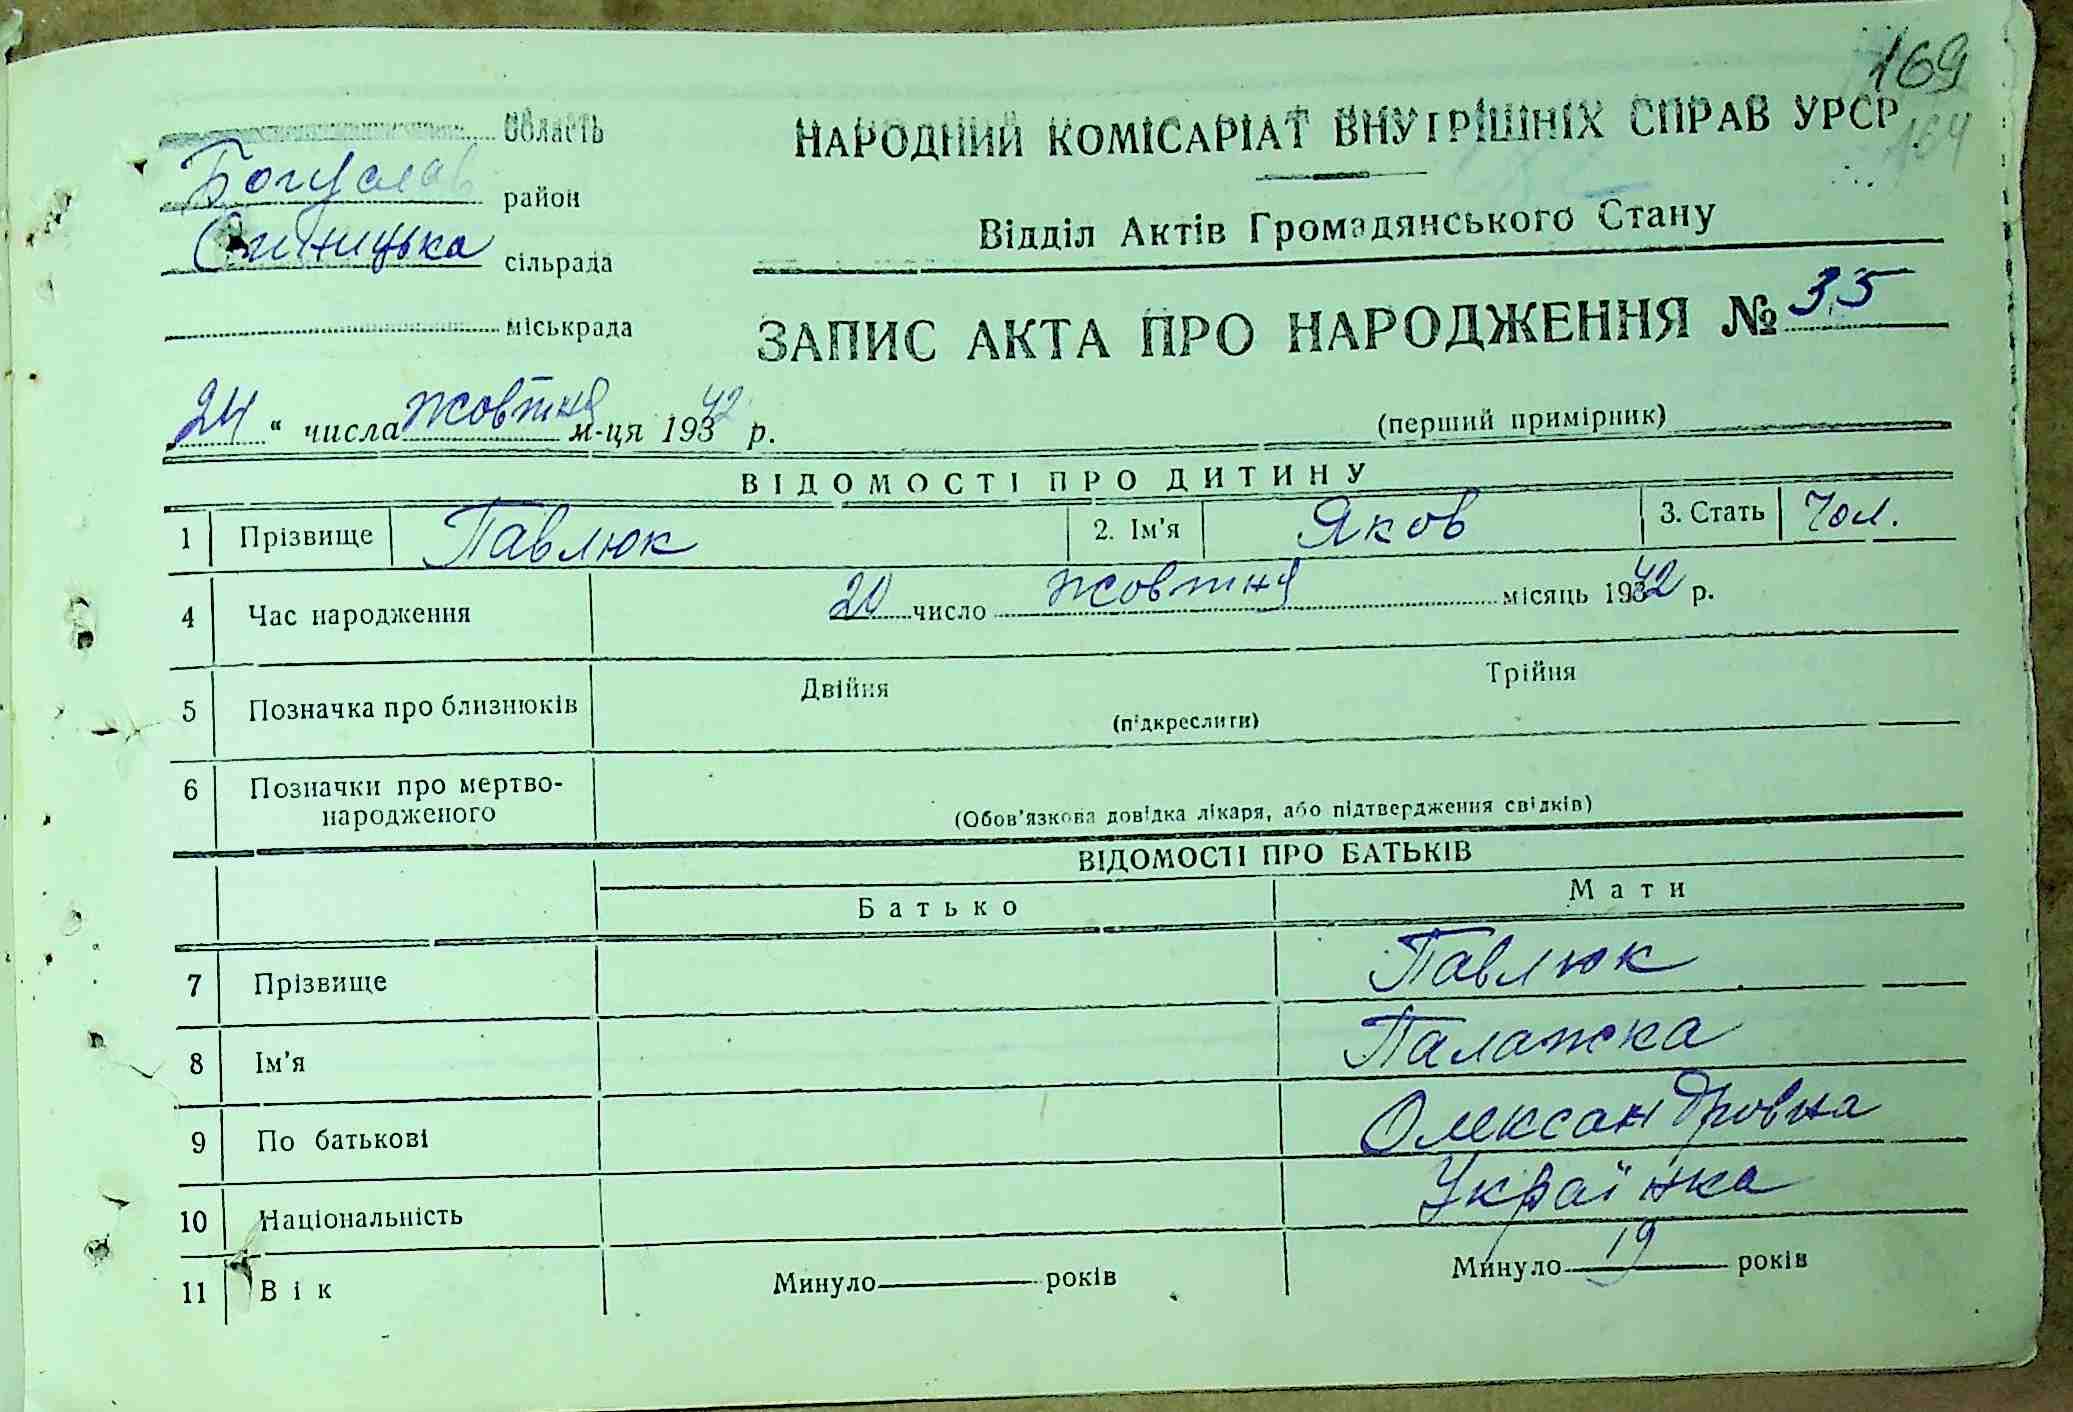 169
164
Область
НАРОДНИЙ КОМІСАРІАТ ВНУТРІШНІХ СПРАВ УРСР
Богуслав район
Відділ Актів Громадянського Стану
Синицька сільрада
міськрада
ЗАПИС АКТА ПРО НАРОДЖЕННЯ № 35
24 “ числа жовтня м-ця 19342 р.
(перший примірник)
ВІДОМОСТІ ПРО ДИТИНУ
1 Прізвище Павлюк 2. Ім'я Яков 3. Стать Чол.
4 Час народження 20 число жовтня місяць 19342 р.
5 Позначка про близнюків Двійня Трійня
(підкреслити)
6 Позначки про мертво-
народженого
(Обов'язкова довідка лікаря, або підтвердження свідків)
ВІДОМОСТІ ПРО БАТЬКІВ
Батько Мати
7 Прізвище Павлюк
8 Ім'я Палажка
9 По батькові Олександровна
10 Національність Українка
11 Вік Минуло років Минуло 19 років